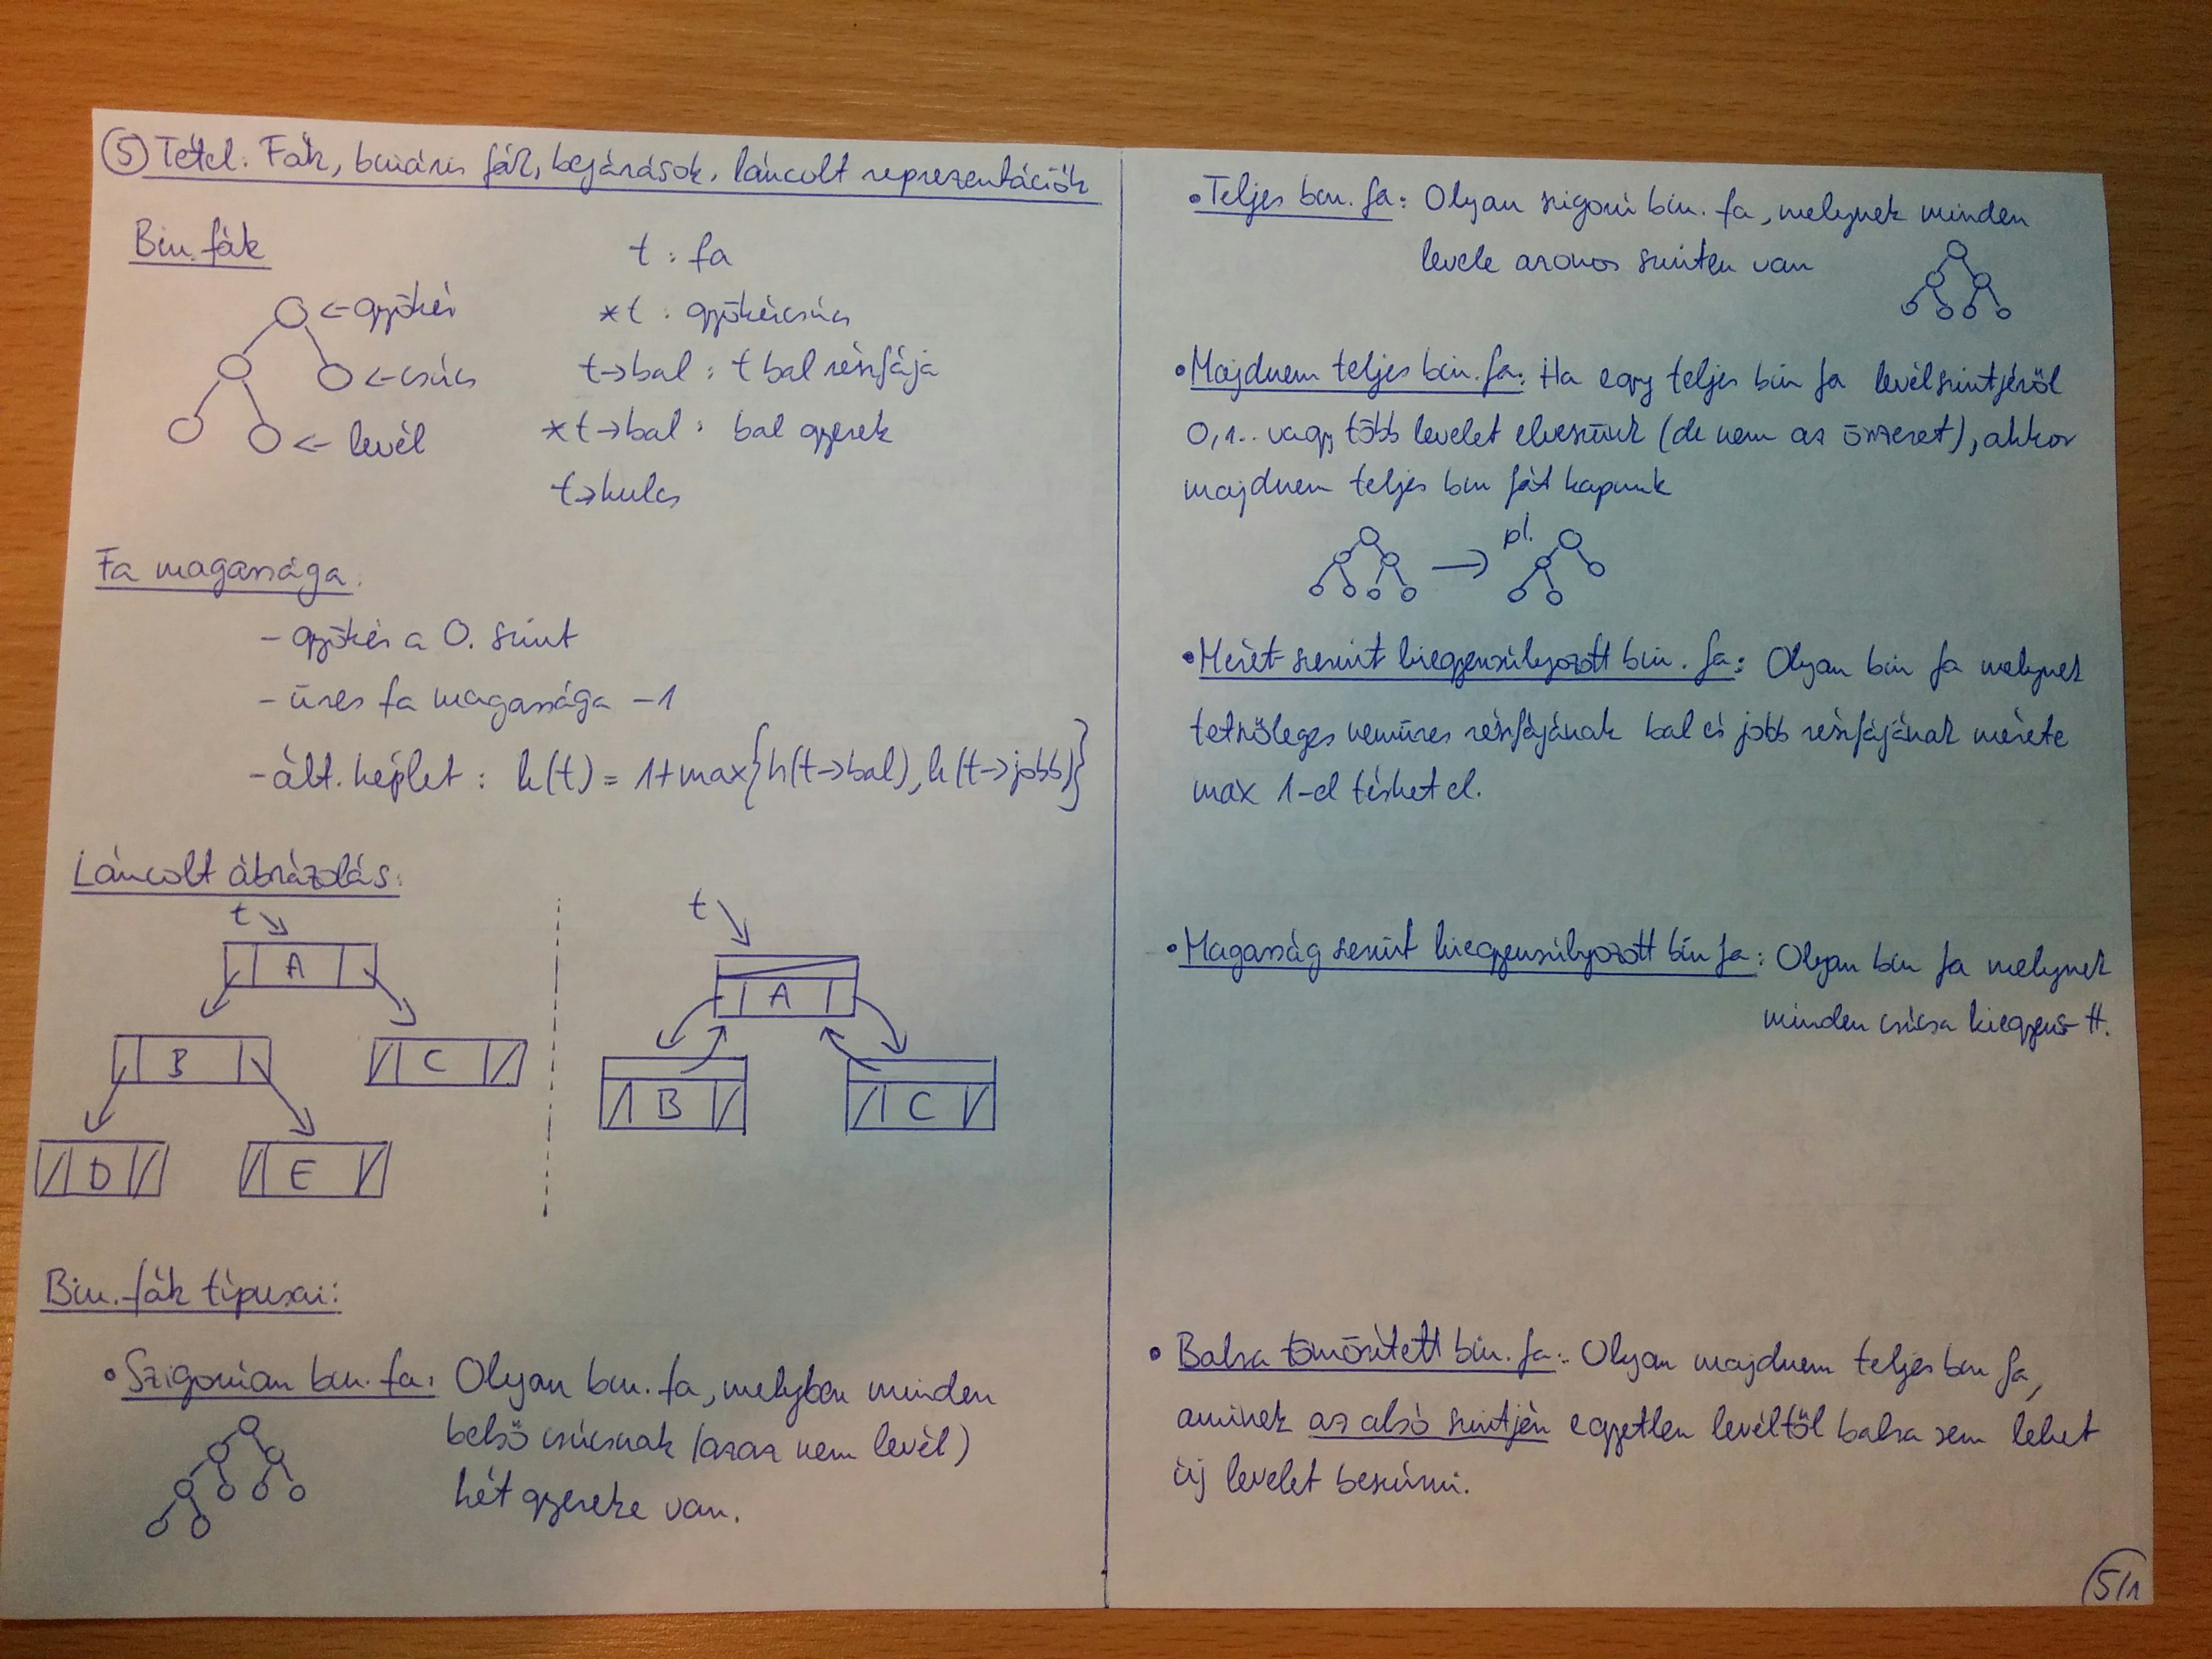 ⑤ Tétel: Fák, bináris fák, bejárások, láncolt reprezentációk
Bin. fák
t : fa
<- gyökér
*t : gyökércsúcs
<- csúcs
t->bal : t bal részfája
<- levél
*t->bal : bal gyerek
t->kulcs
Fa magassága:
- gyökér a 0. szint
- üres fa magassága -1
- ált. képlet : h(t) = 1+max{h(t->bal), h(t->jobb)}
Láncolt ábrázolás:
t
A
B
C
D
E
t
A
B
C
Bin. fák típusai:
• Szigorúan bin. fa: Olyan bin. fa, melyben minden
belső csúcsnak (azaz nem levél)
két gyereke van.
• Teljes bin. fa: Olyan szigorú bin. fa, melynek minden
levele azonos szinten van
• Majdnem teljes bin. fa: Ha egy teljes bin fa levélszintjéről
0,1.. vagy több levelet elveszünk (de nem az összeset), akkor
majdnem teljes bin fát kapunk
pl.
• Méret szerint kiegyensúlyozott bin. fa: Olyan bin fa melynek
tetszőleges nemüres részfájának bal és jobb részfájának mérete
max 1-el térhet el.
• Magasság szerint kiegyensúlyozott bin fa: Olyan bin fa melynek
minden csúcsa kiegyens-tt.
• Balra tömörített bin. fa: Olyan majdnem teljes bin fa,
aminek az alsó szintjén egyetlen levéltől balra sem lehet
új levelet beszúrni.
5/1